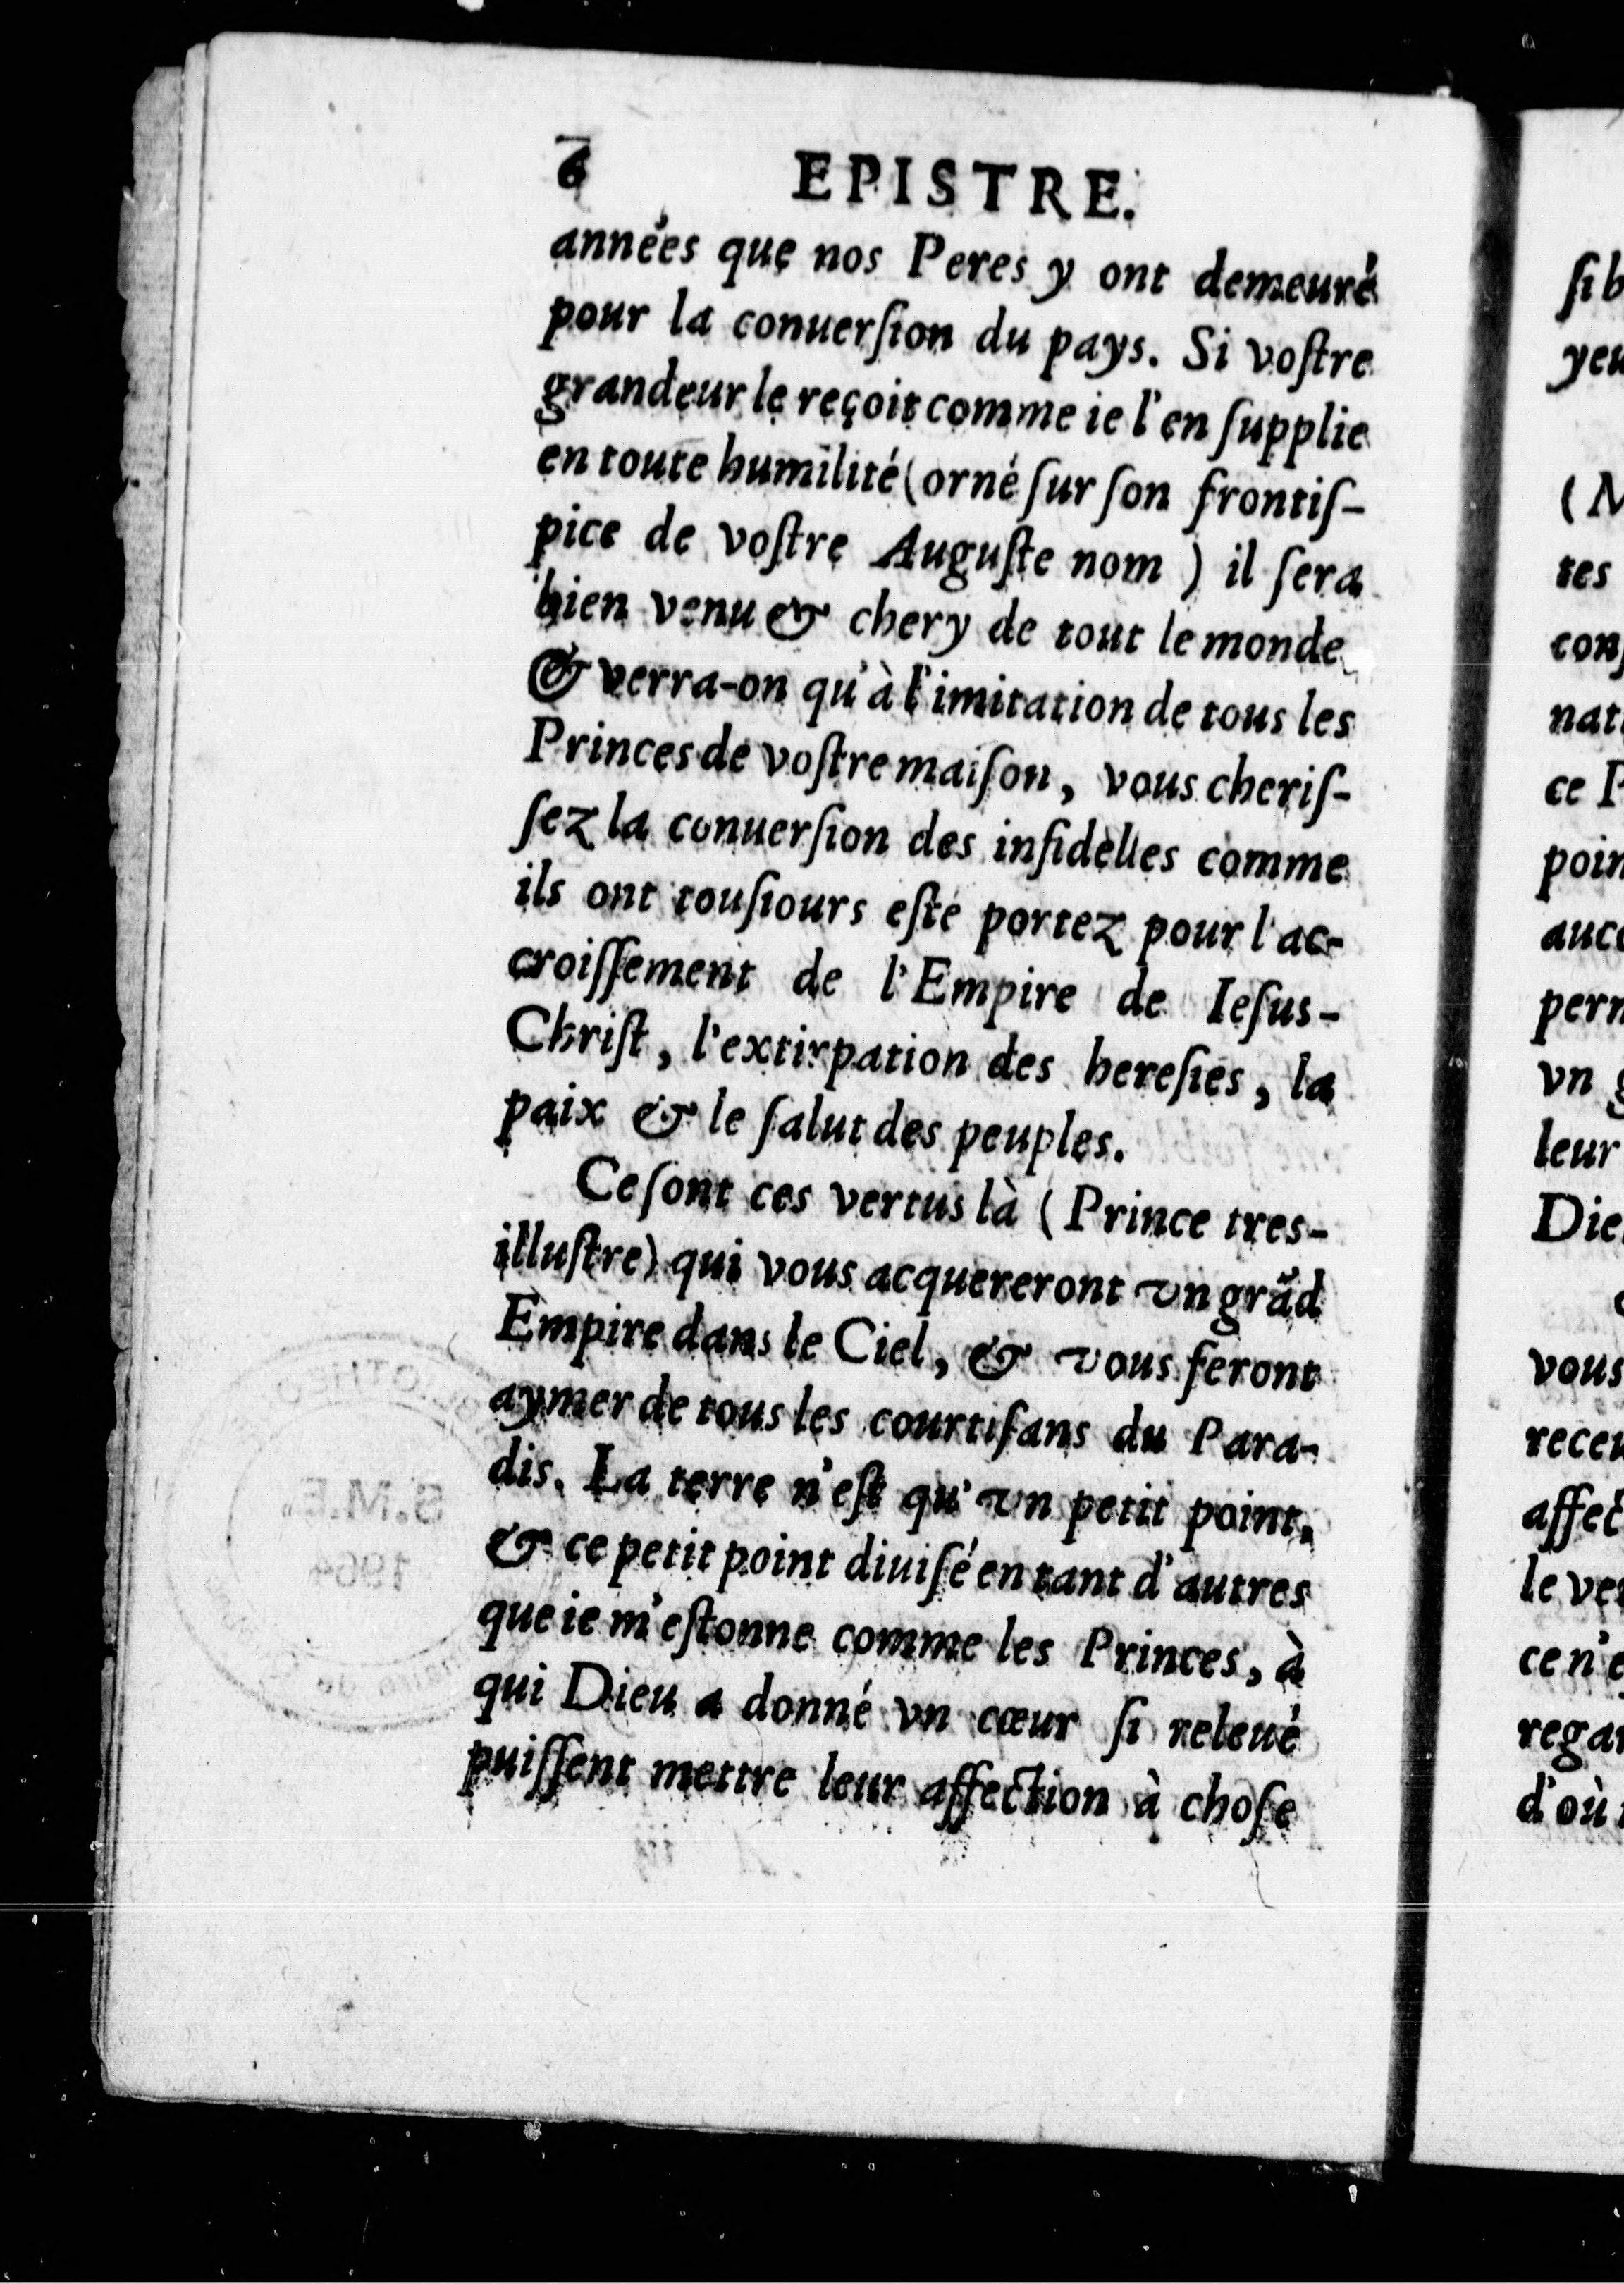 6 EPISTRE.
années que nos Peres y ont demeuré
pour la conuerſion du pays. Si voſtre
grandeur le reçoit comme ie l'en ſupplie
en toute humilité (orné ſur ſon frontiſ-
pice de voſtre Auguſte nom) il ſera
bien venu & chery de tout le monde
& verra-on qu'à l'imitation de tous les
Princes de voſtre maiſon, vous cheriſ-
ſez la conuerſion des infidelles comme
ils ont touſiours eſté portez pour l'ac-
croiſſement de l'Empire de Ieſus-
Chriſt, l'extirpation des hereſies, la
paix & le ſalut des peuples.
Ce ſont ces vertus là (Prince tres-
illuſtre) qui vous acquereront vn grãd
Empire dans le Ciel, & vous feront
aymer de tous les courtiſans du Para-
dis. La terre n'eſt qu'vn petit point,
& ce petit point diuiſé en tant d'autres
que ie m'eſtonne comme les Princes, à
qui Dieu a donné vn cœur ſi releué
puiſſent mettre leur affection à choſe
S.M.E.
1964
ſi b
yeu
(M
tes
conſ
nat
ce P
poin
auc
pern
vn g
leur
Die
vous
receu
affect
le ve
ce n'e
regar
d'où